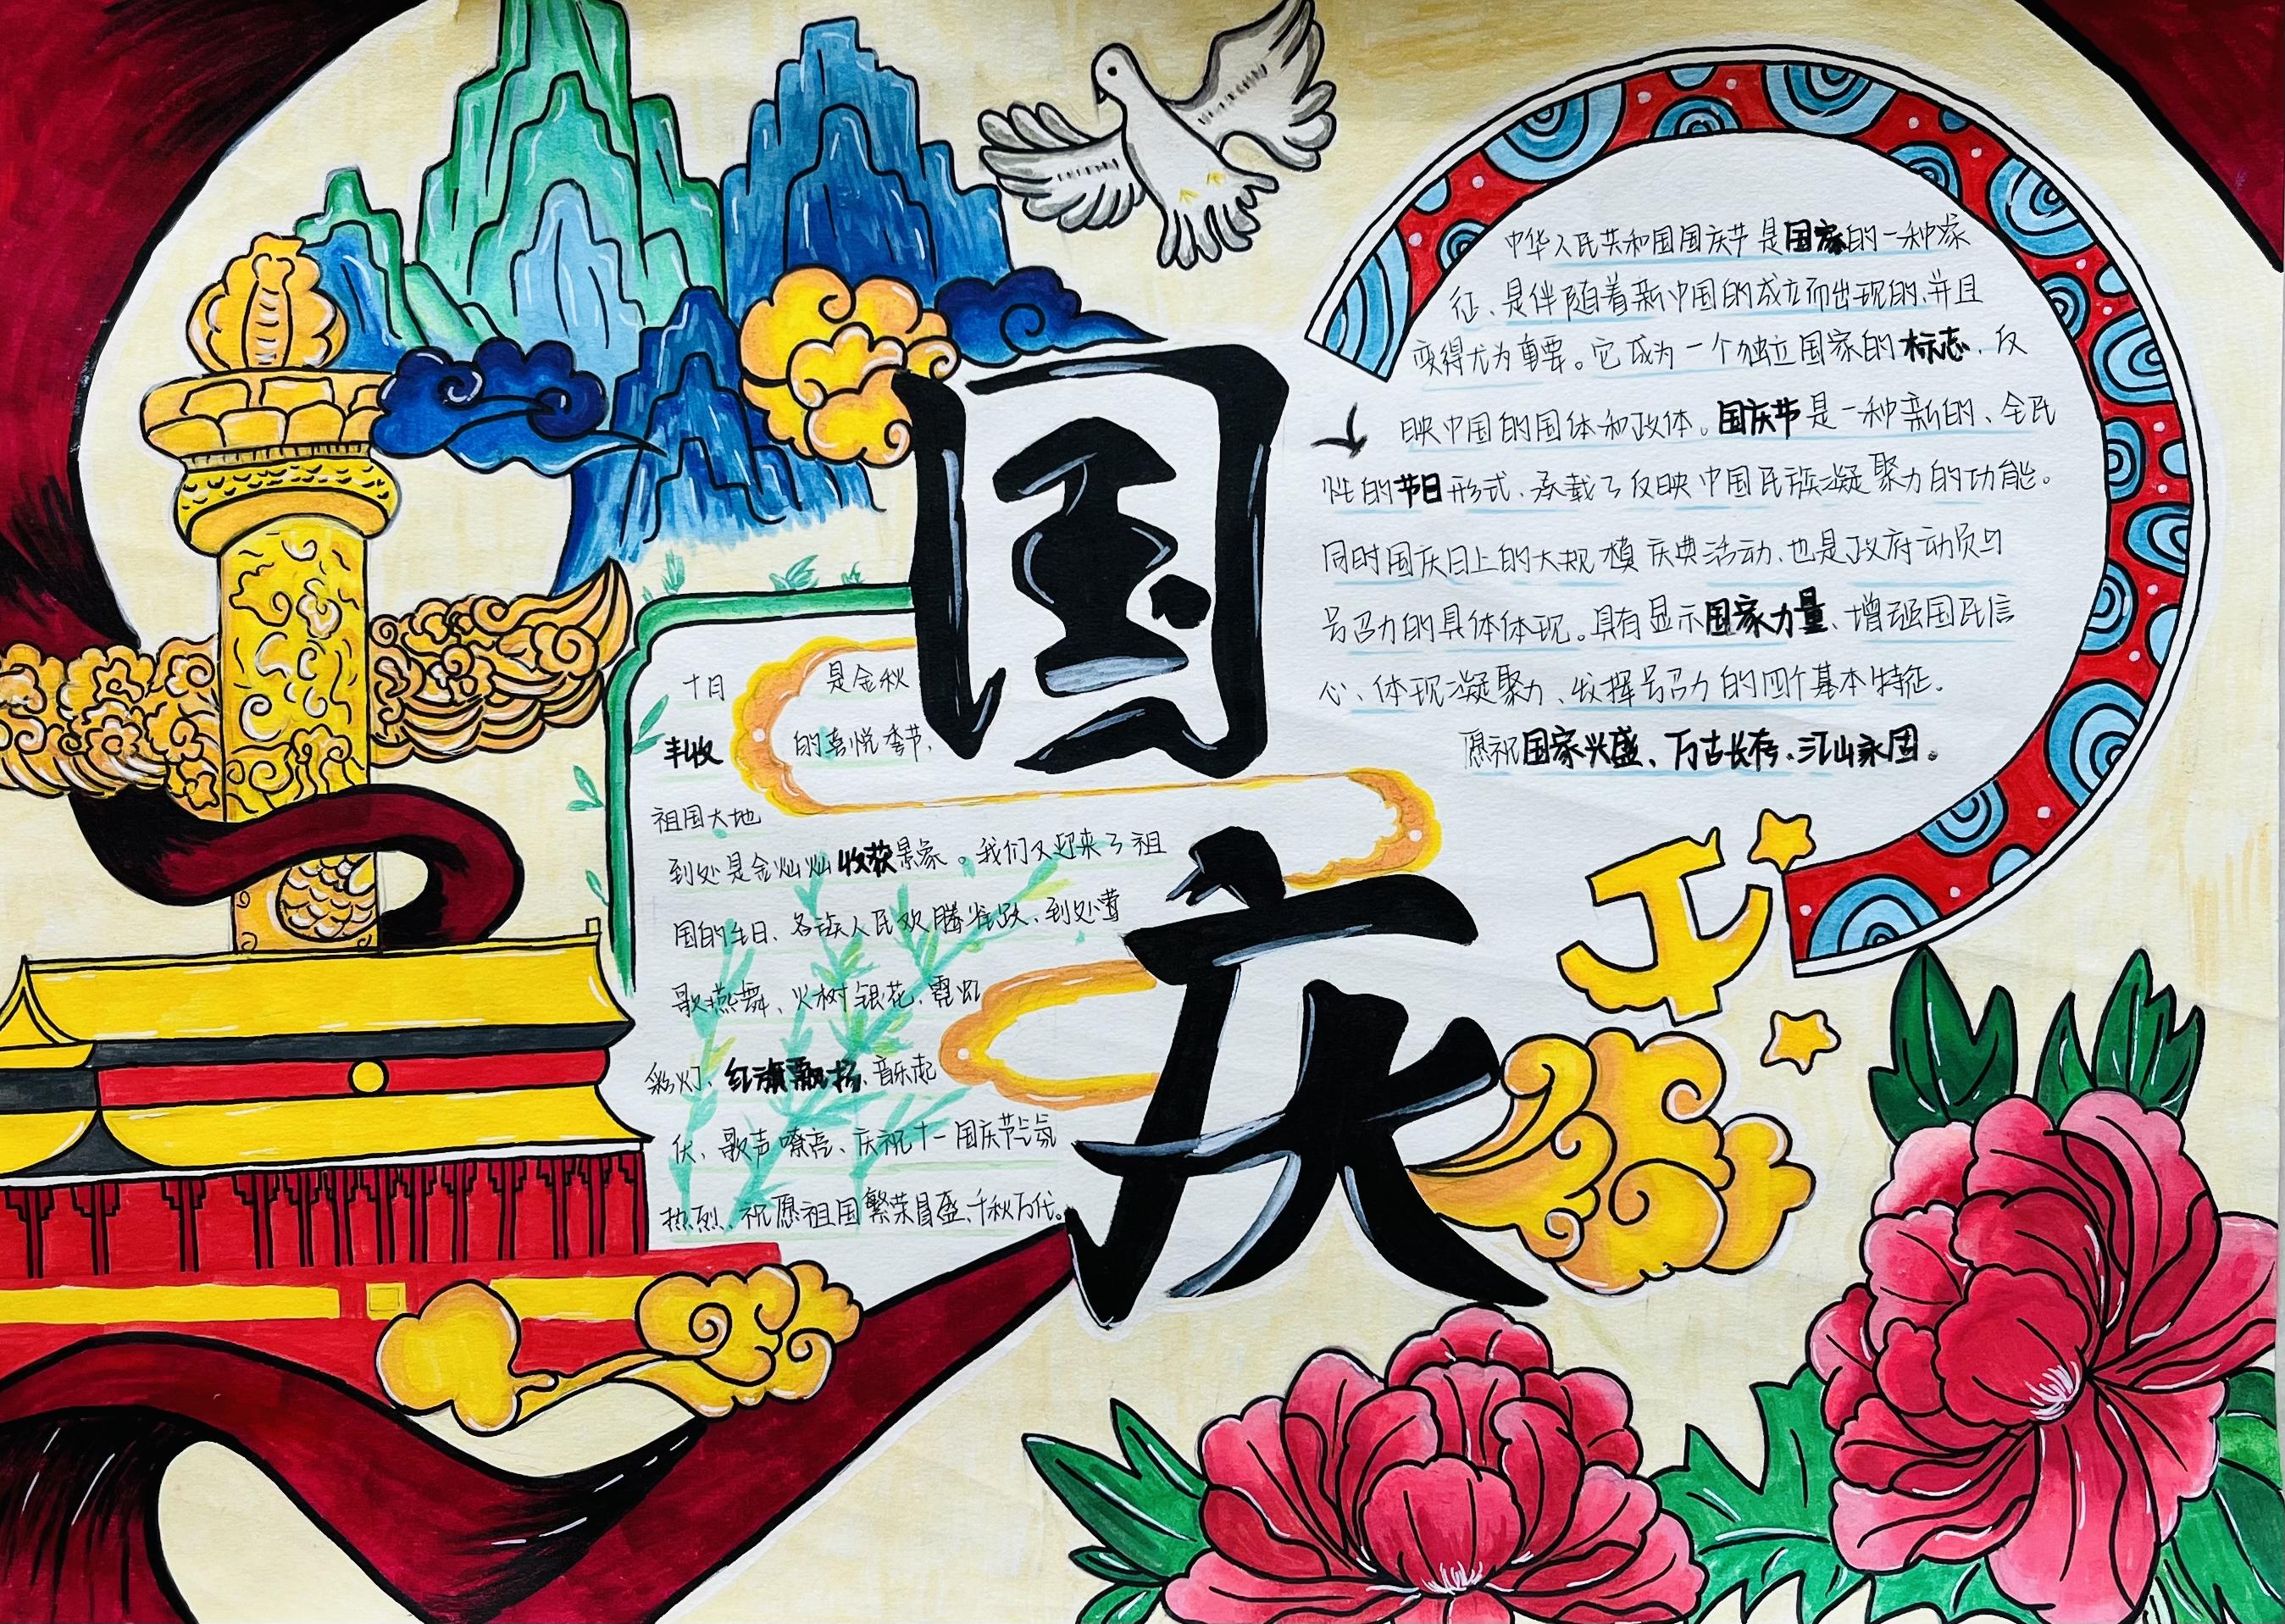 国庆
中华人民共和国国庆节是国家的一种象
征、是伴随着新中国的成立而出现的、并且
变得尤为重要。它成为一个独立国家的标志、反
映中国的国体和政体。国庆节是一种新的、全民
性的节日形式、承载了反映中国民族凝聚力的功能。
同时国庆日上的大规模庆典活动、也是政府动员与
号召力的具体体现。具有显示国家力量、增强国民信
心、体现凝聚力、发挥号召力的四个基本特征。
愿祝国家兴盛、万古长存、江山永固。
十月 是金秋
丰收 的喜悦季节、
祖国大地
到处是金灿灿收获景象。我们又迎来了祖
国的生日、各族人民欢腾雀跃、到处莺
歌燕舞、火树银花、霓虹
彩灯、红旗飘扬、音乐起
伏、歌声嘹亮、庆祝十一国庆节气氛
热烈、祝愿祖国繁荣昌盛、千秋万代。